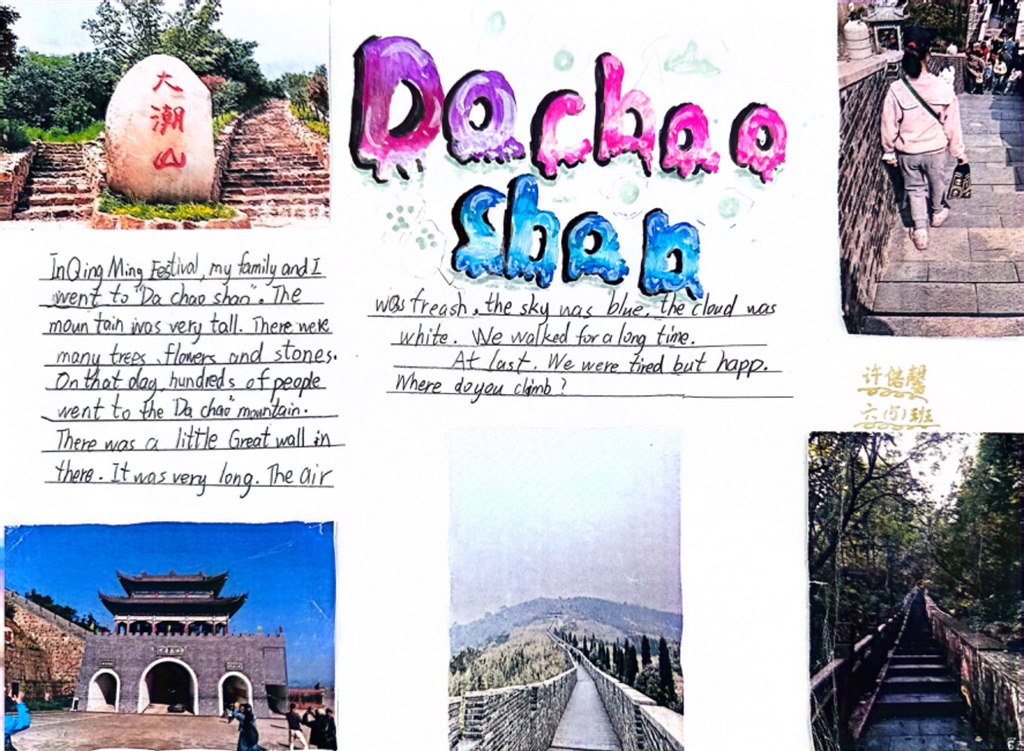 大潮山
Da chao
shan
In Qing Ming Festival, my family and I
went to "Da chao shan". The
mountain was very tall. There were
many trees, flowers and stones.
On that day, hundreds of people
went to the "Da chao" mountain.
There was a little Great wall in
there. It was very long. The air
was freash, the sky was blue, the cloud was
white. We walked for a long time.
At last. We were tired but happ.
Where do you climb?
六(5)班